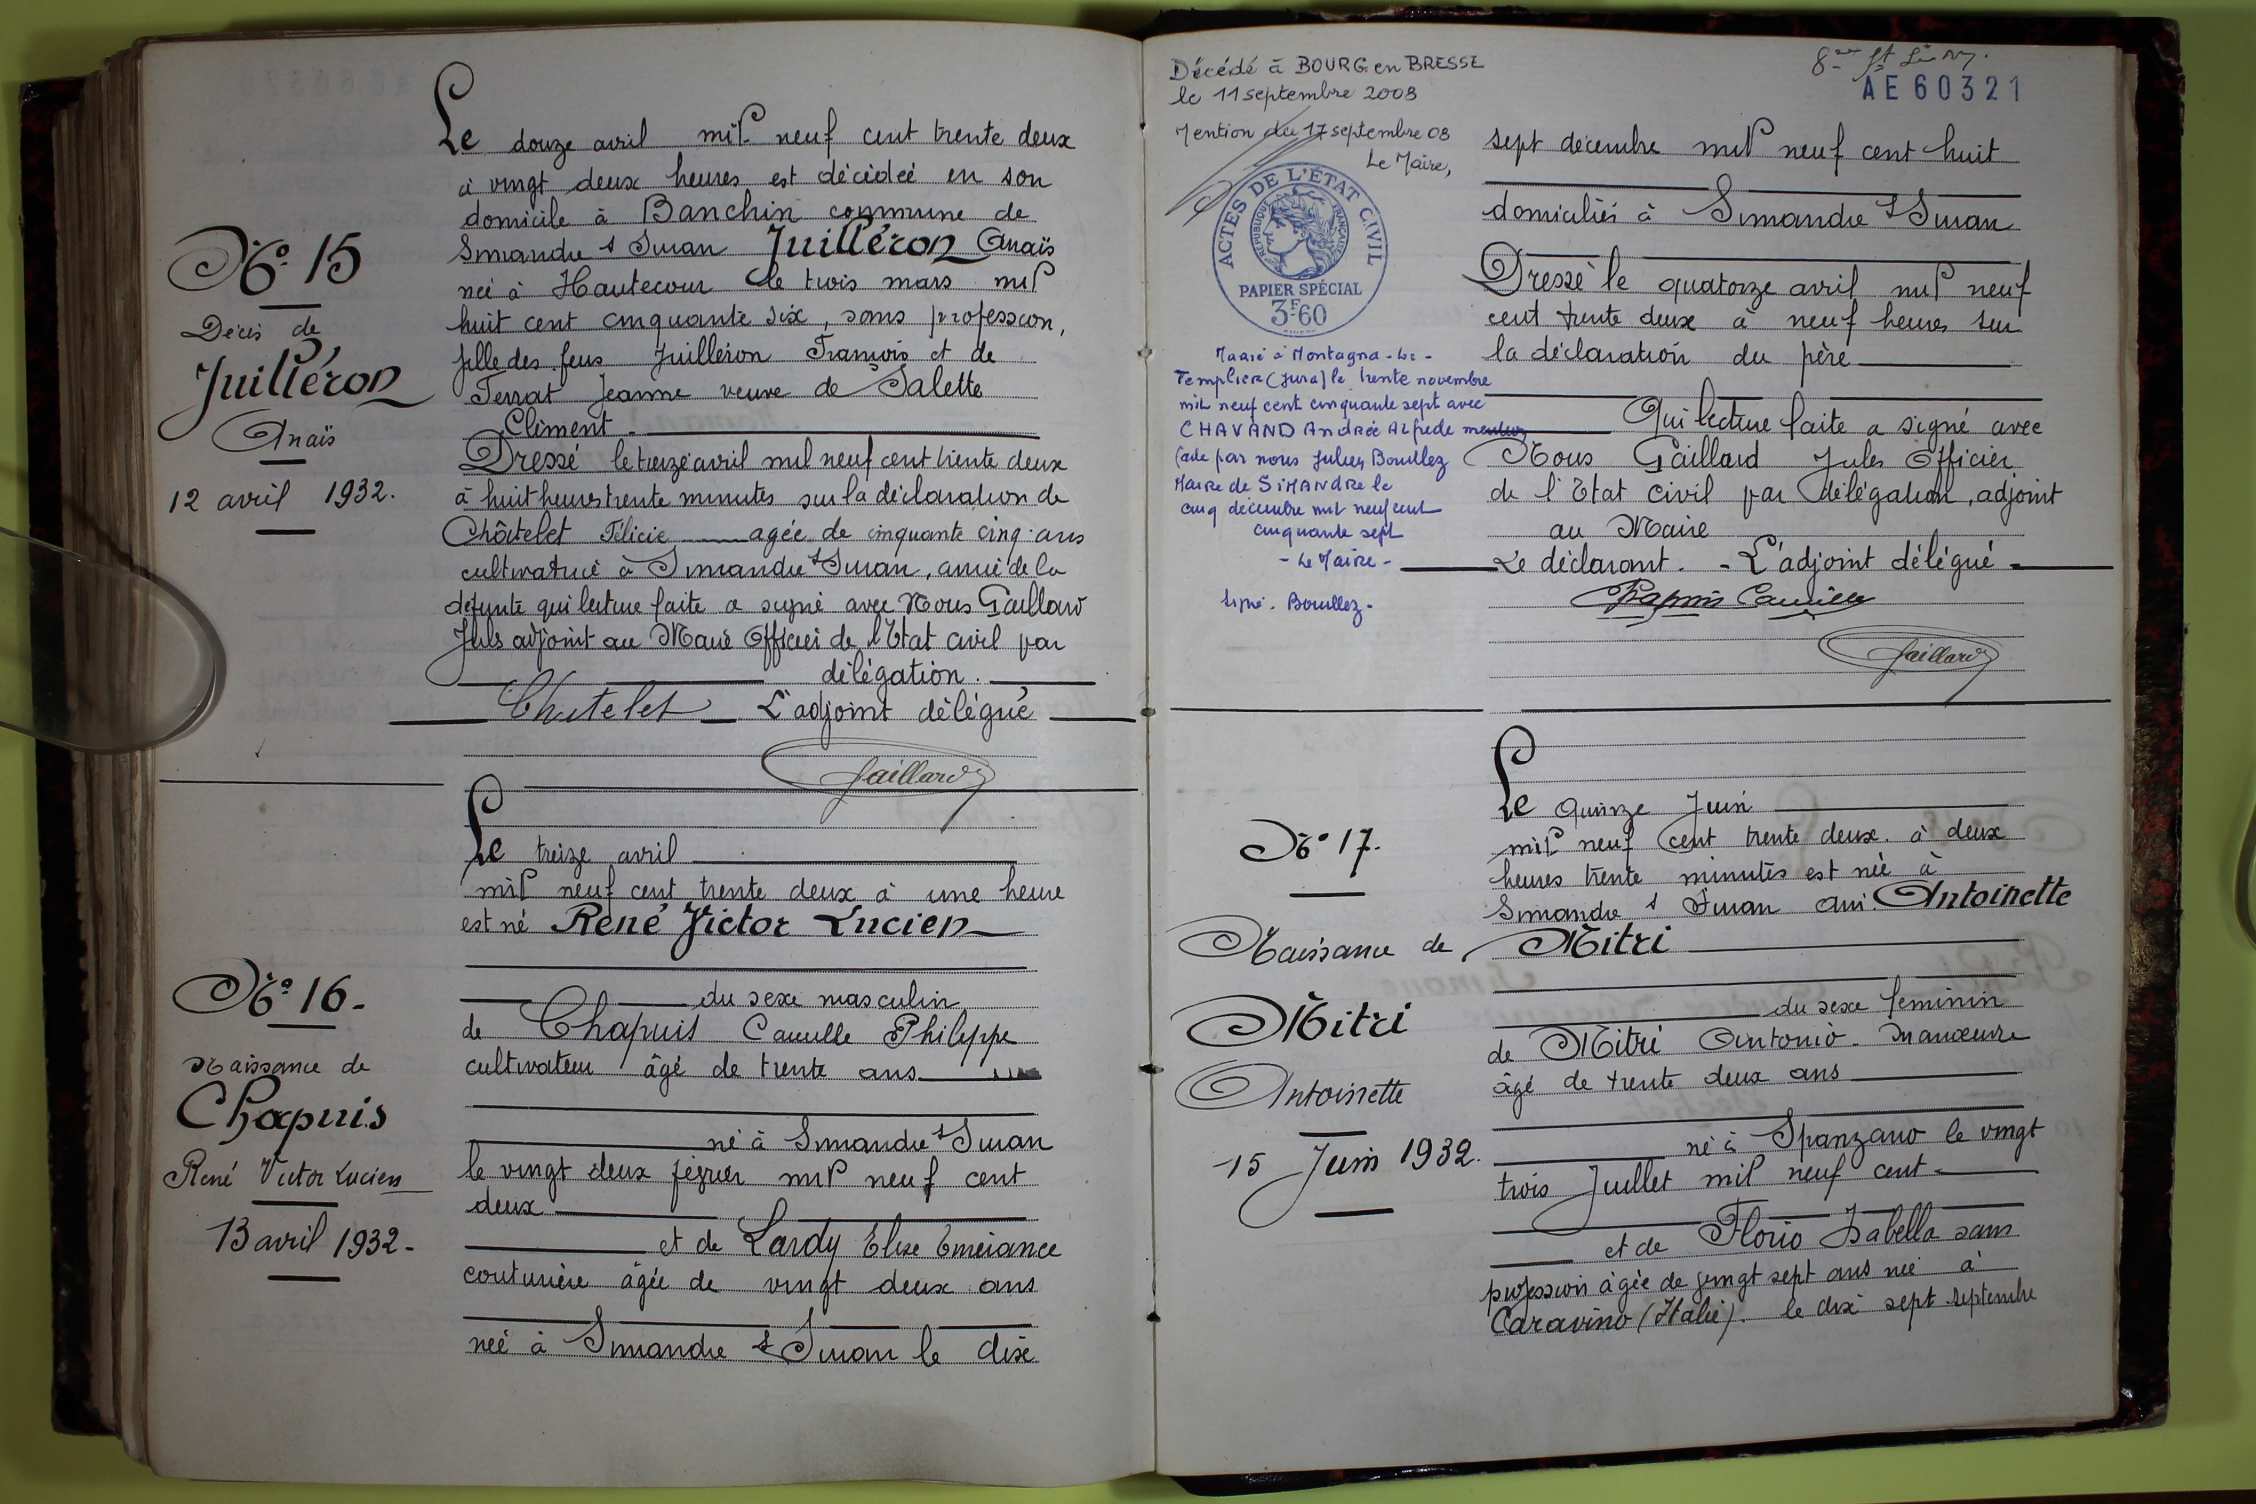 Le douze avril mil neuf cent trente deux
à vingt deux heures est décédée en son
domicile à Banchin commune de
Simandre s Suran Juilléron Anaïs
née à Hautecour le trois mars mil
huit cent cinquante six, sans profession,
fille des feus Juilléron François et de
Ferrat Jeanne veuve de Salette
Climent
N° 15
Décès de
Juilléron
Anaïs
12 avril 1932.
Dressé le treize avril mil neuf cent trente deux
à huit heures trente minutes sur la déclaration de
Châtelet Félicie agée de cinquante cinq ans
cultivatrice à Simandre s Suran, amie de la
défunte qui lecture faite a signé avec Nous Gaillard
Jules adjoint au Maire Officier de l'Etat civil par
délégation.
Chatelet L'adjoint délégué
Gaillard
Le treize avril
mil neuf cent trente deux à une heure
est né René Victor Lucien
N° 16
Naissance de
Chapuis
René Victor Lucien
13 avril 1932
du sexe masculin
de Chapuis Camille Philippe
cultivateur âgé de trente ans
né à Simandre s Suran
le vingt deux février mil neuf cent
deux
et de Lardy Elise Emérance
couturière âgée de vingt deux ans
née à Simandre s Suran le dix
AE60321
Décédé à BOURG en BRESSE
le 11 septembre 2008
Mention du 17 septembre 08
Le Maire,
ACTES DE L'ÉTAT CIVIL
RÉPUBLIQUE FRANÇAISE
PAPIER SPÉCIAL
3F60
Marié à Montagna-le-
Templier (Jura) le trente novembre
mil neuf cent cinquante sept avec
CHAVAND Andrée Alfrede mention
faite par nous Julien Bouillez
Maire de SIMANDRE le
cinq décembre mil neuf cent
cinquante sept
- Le Maire -
Signé. Bouillez-
sept décembre mil neuf cent huit
domiciliés à Simandre s Suran
Dressé le quatorze avril mil neuf
cent trente deux à neuf heures sur
la déclaration du père
Qui lecture faite a signé avec
Nous Gaillard Jules Officier
de l'Etat civil par délégation, adjoint
au Maire
Le déclarant. - L'adjoint délégué
Chapuis Camille
Gaillard
Le Quinze Juin
mil neuf cent trente deux à deux
heures trente minutes est née à
Simandre s Suran Antoinette
Mitri
N° 17.
Naissance de
Mitri
Antoinette
15 Juin 1932.
du sexe féminin
de Mitri Antonio manœuvre
âgé de trente deux ans
né à Spanzano le vingt
trois Juillet mil neuf cent
et de Florio Isabella sans
profession âgée de vingt sept ans née à
Caravino (Italie). le dix sept septembre